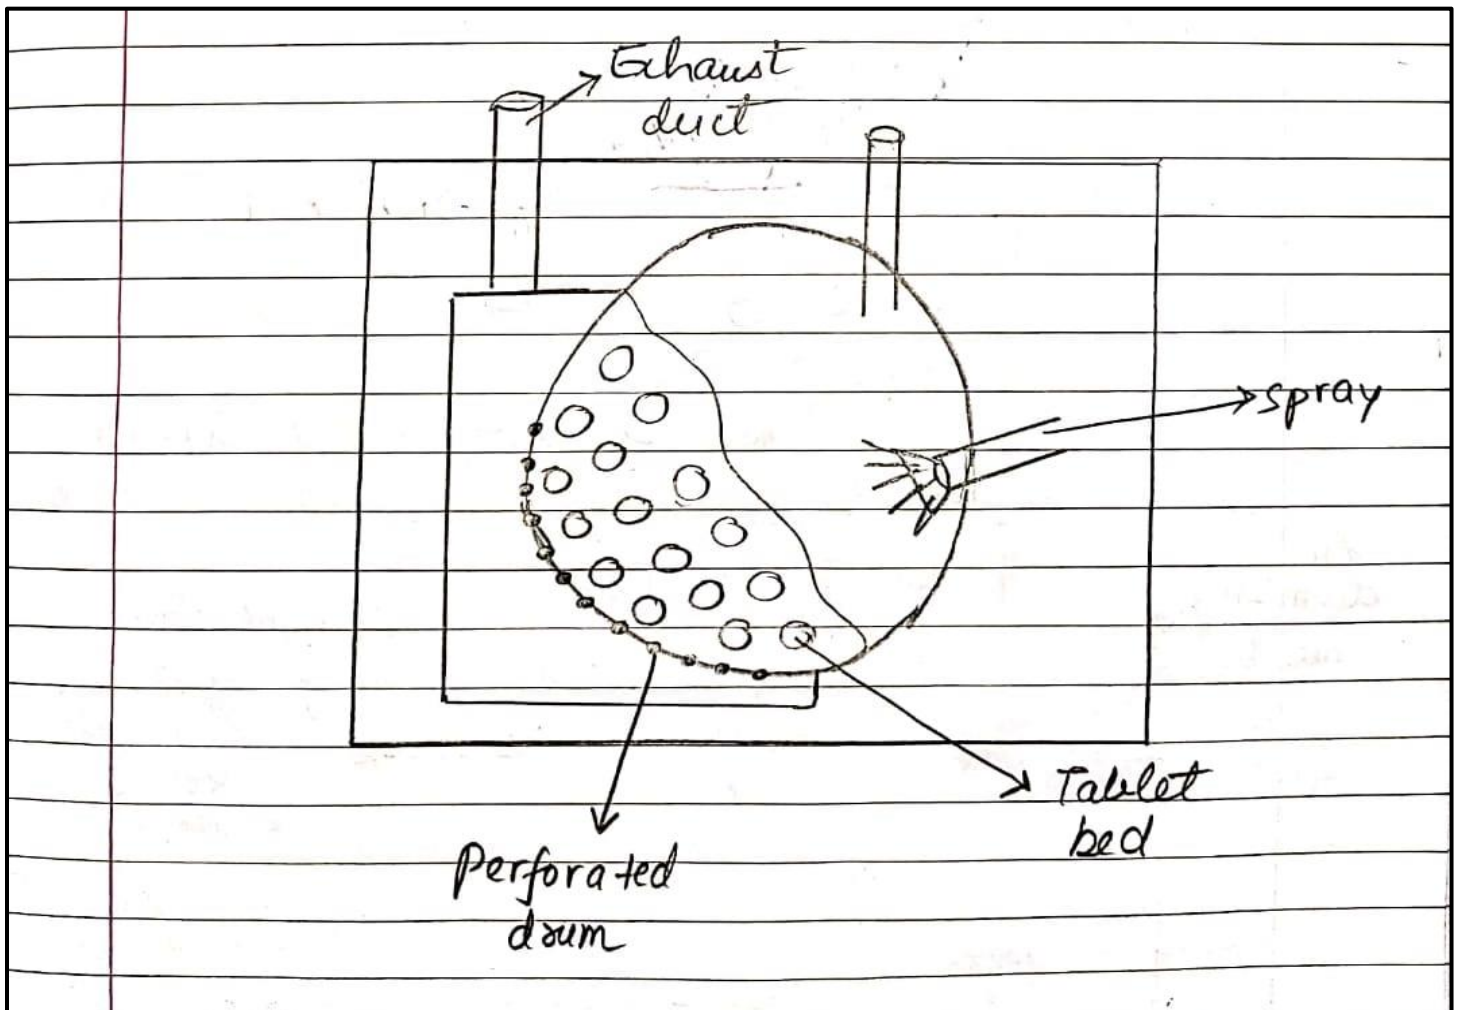 Exhaust
duct
spray
Tablet
bed
Perforated
drum